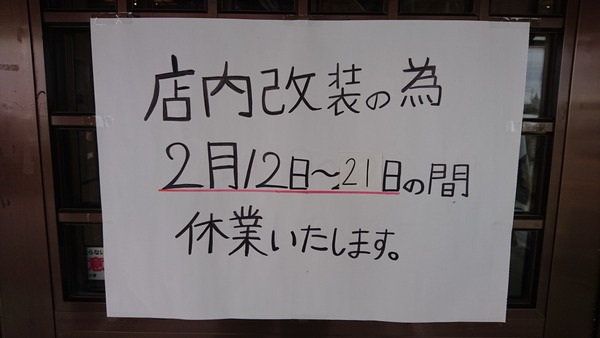 店内改装の為
2月12日～21日の間
休業いたします。